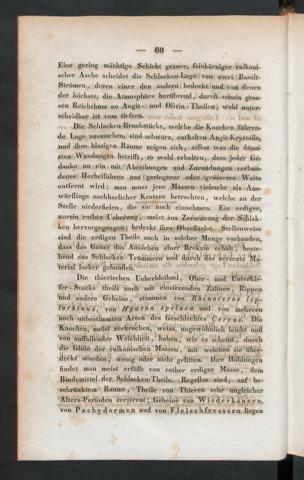 — 60 —
Eine gering mächtige Schicht grauer, feinkörniger vulkani-
scher Asche scheidet die Schlacken-Lage von zwei Basalt-
Strömen, deren einer den andern bedeckt und von denen
der höchste, die Atmosphäre berührend, durch einen gros-
sen Reichthum an Augit- und Olivin-Theilen, wohl unter-
scheidbar ist vom tiefern.
Die Schlacken-Bruchstücke, welche die Knochen führen-
de Lage ausmachen, sind schwarz, enthalten Augit-Krystalle,
und ihre blasigen Räume zeigen sich, selbst was die dünn-
sten Wandungen betrifft, so wohl erhalten, dass jeder Ge-
danke an ein mit Abreibungen und Zurundungen verbun-
denes Herbeiführen aus geringerer oder grösserer Weite
entfernt wird; man muss jene Massen vielmehr als Aus-
würflinge nachbarlicher Kratere betrachten, welche an der
Stelle niederfielen, die sie noch einnehmen. Ein erdiger,
unrein rother Ueberzug, meist aus Zersetzung der Schlak-
ken hervorgegangen, bedeckt ihre Oberfläche. Stellenweise
sind die erdigen Theile auch in solcher Menge vorhanden,
dass das Ganze das Ansehen einer Breksie erhält, beste-
hend aus Schlacken-Trümmern und durch das zersetzte Ma-
terial locker gebunden.
Die thierischen Ueberbleibsel, Ober- und Unterkie-
fer-Stücke theils noch mit einsitzenden Zähnen, Rippen
und andere Gebeine, stammen von Rhinoceros lep-
torhinus, von Hyaena spelaea und von mehreren
noch unbestimmten Arten des Geschlechtes Cervus. Die
Knochen, meist zerbrochen, weiss, ungewöhnlich leicht und
von auffallender Weichheit, haben, wie es scheint, durch
die Gluth der vulkanischen Massen, mit welchen sie über-
deckt worden, wenig oder nicht gelitten. Ihre Höhlungen
findet man meist erfüllt von rother erdiger Masse, dem
Bindemittel der Schlacken-Theile. Regellos sind, auf be-
schränktem Raume, Theile von Thieren sehr ungleicher
Alters-Perioden zerstreut; Gebeine von Wiederkäuern,
von Pachydermen und von Fleischfressern liegen